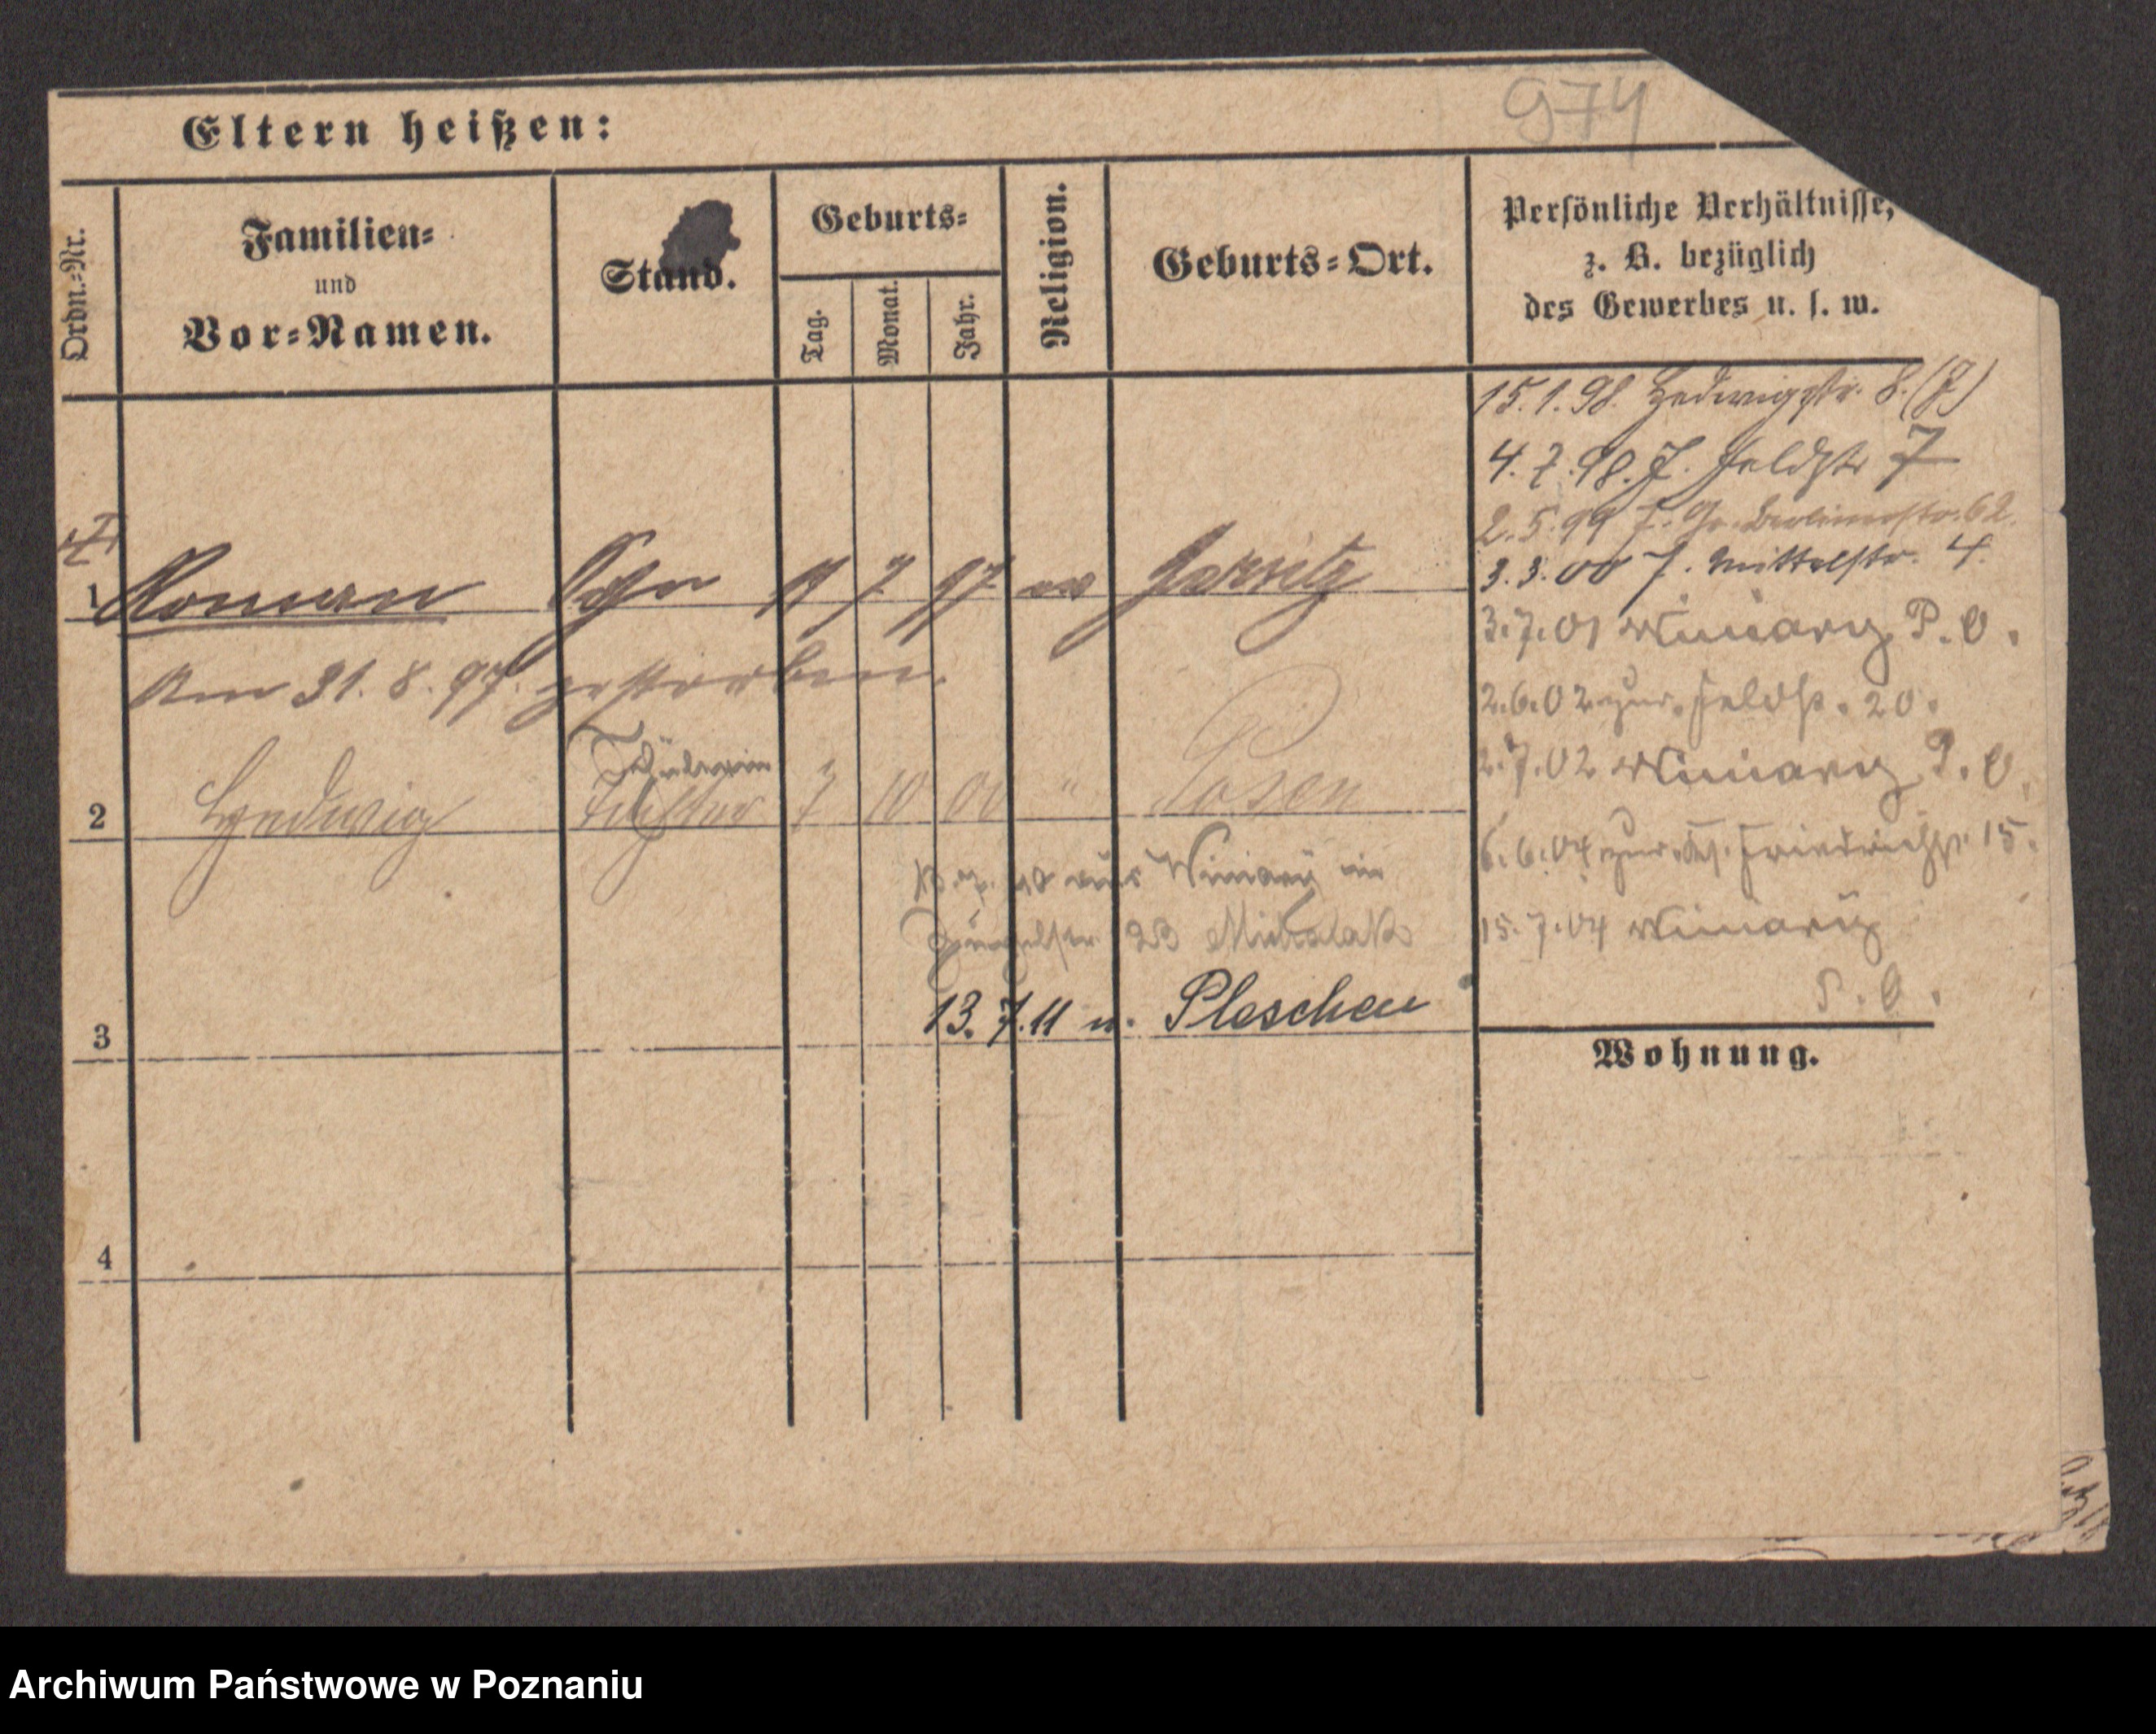 974
Eltern heißen:
Ordn.-Nr.
Familien-
und
Vor-Namen.
Stand.
Geburts-
Tag.
Monat.
Jahr.
Religion.
Geburts-Ort.
Persönliche Verhältnisse,
z. B. bezüglich
des Gewerbes u. s. w.
15.1.98. Hedwigstr. 8. (J)
4.7.98. J. Feldstr 7
2.5.99 J. Gr. Berlinerstr. 62.
3.3.00 J. Mittelstr. 4.
3.7.01 Winiary P. O.
2.6.02 zur. Feldstr. 20.
2.7.02 Winiary P. O.
6.6.04 zur. Friedrichstr. 15.
15.7.04 Winiary
P. O.
1 Roman Sohn 7 97 Jersitz
Am 31. 8. 97. gestorben.
Schülerin
2 Hedwig Tochter 7 10 00 " Posen
10 aus Winiary in
23 Michalak
3 13.7.11 n. Pleschen
Wohnung.
4
Archiwum Państwowe w Poznaniu